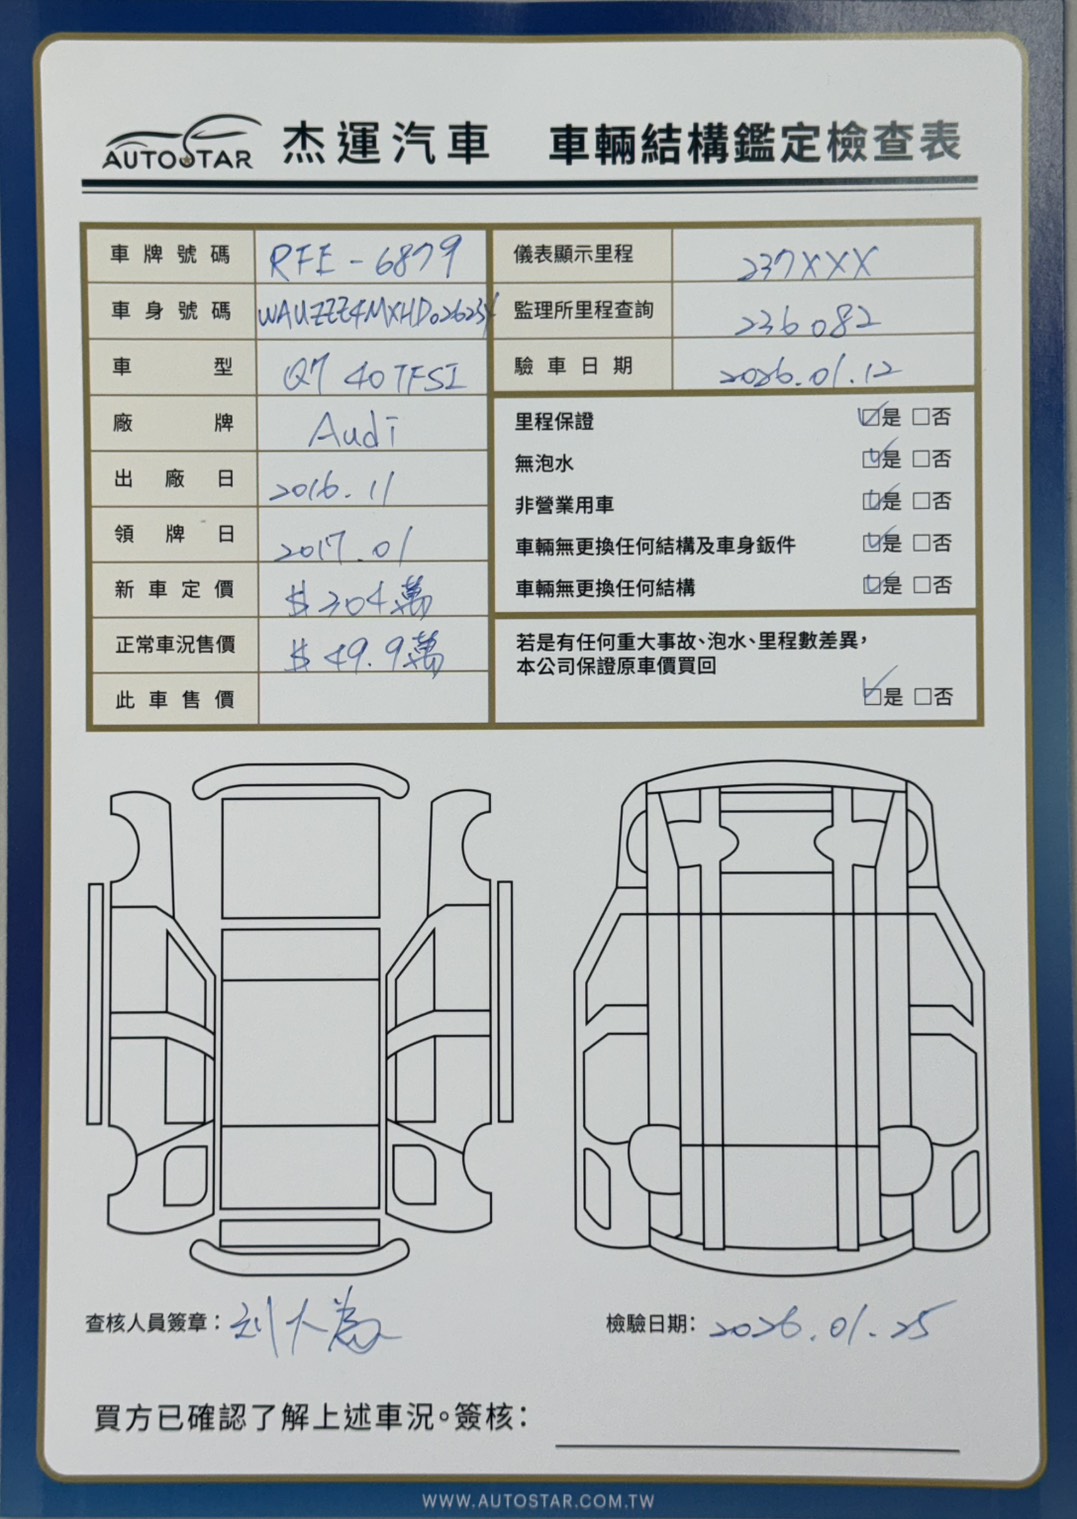 AUTOSTAR 杰運汽車 車輛結構鑑定檢查表
車牌號碼 RFE-6879
車身號碼
車型 Q7 40 TFSI
廠牌 Audi
出廠日 2016.11
領牌日 2017.01
新車定價 $304萬
正常車況售價 $49.9萬
此車售價
儀表顯示里程 237XXX
監理所里程查詢 236082
驗車日期 2026.01.12
里程保證 ☑是 □否
無泡水 ☑是 □否
非營業用車 ☑是 □否
車輛無更換任何結構及車身鈑件 ☑是 □否
車輛無更換任何結構 ☑是 □否
若是有任何重大事故、泡水、里程數差異，
本公司保證原車價買回
☑是 □否
查核人員簽章：
檢驗日期: 2026.01.25
買方已確認了解上述車況。簽核：
WWW.AUTOSTAR.COM.TW